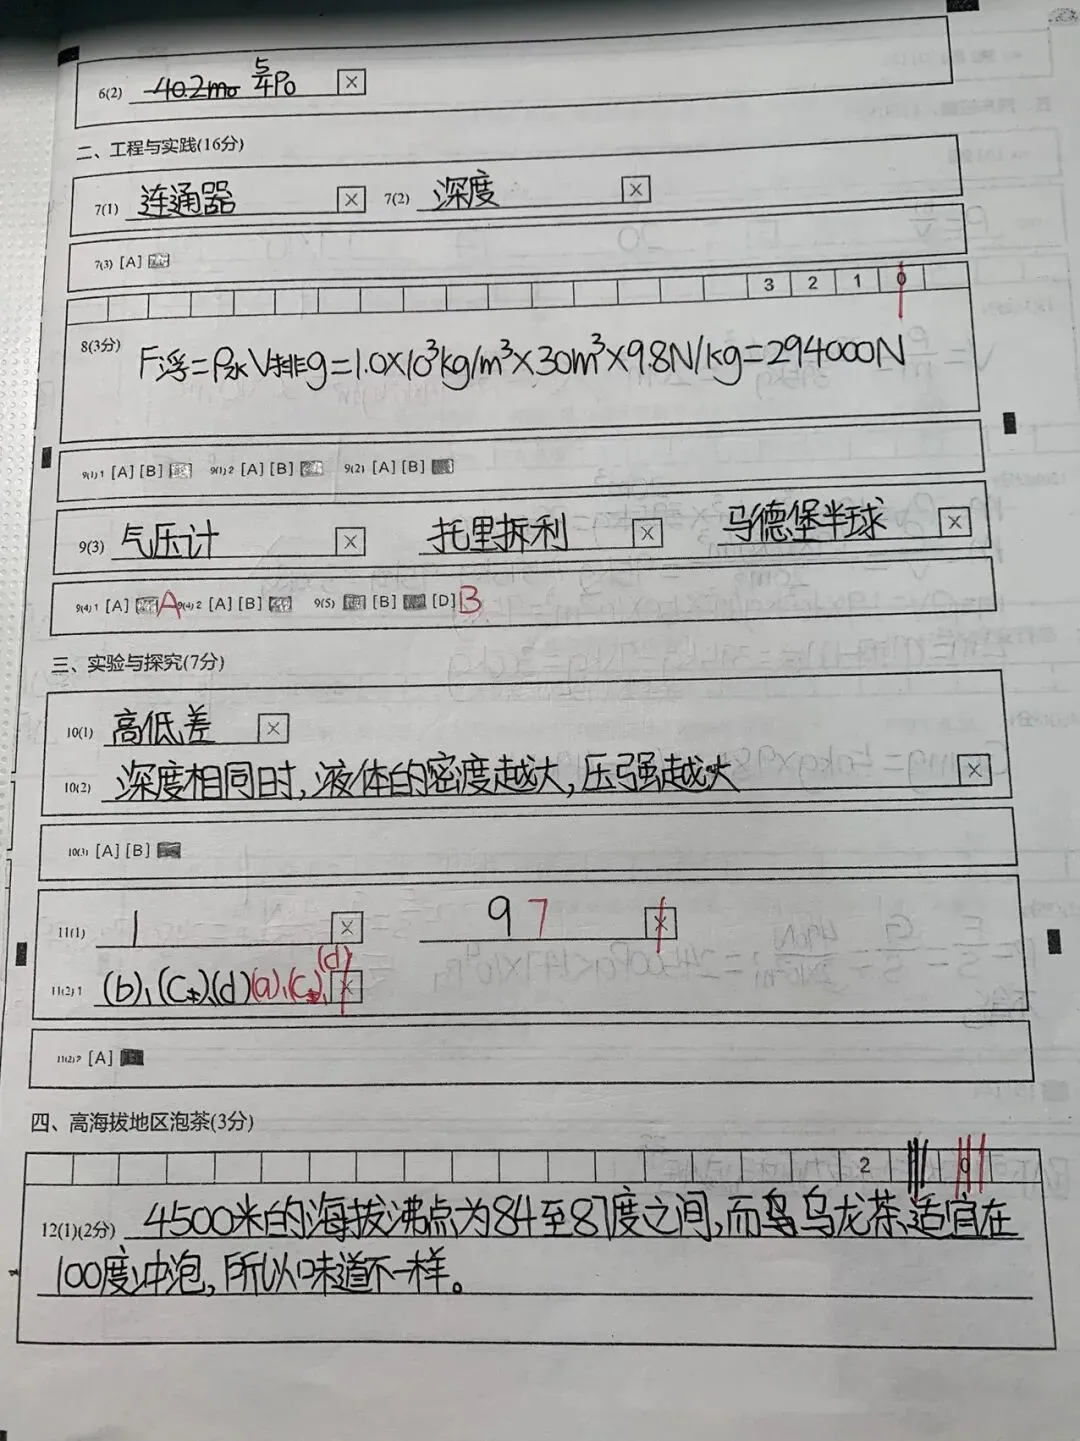 6(2) 40.2m₀ 5/4P₀ ×
二、工程与实践(16分)
7(1) 连通器 × 7(2) 深度 ×
7(3) [A]
3 2 1 0
8(3分) F浮=ρ水V排g=1.0×10³kg/m³×30m³×9.8N/kg=294000N
9(1)1 [A] [B] 9(1)2 [A] [B] 9(2) [A] [B]
9(3) 气压计 × 托里拆利 × 马德堡半球 ×
9(4)1 [A] A 9(4)2 [A] [B] 9(5) [B] [D] B
三、实验与探究(7分)
10(1) 高低差 ×
10(2) 深度相同时,液体的密度越大,压强越大 ×
10(3) [A] [B]
11(1) 1 × 9 7 ×
(d)
11(2)1 (b)、(c)、(d) (a)、(c)、 ×
11(2)2 [A]
四、高海拔地区泡茶(3分)
2 0
12(1)(2分) 4500米的海拔沸点为84至87度之间,而乌龙茶适宜在
100度冲泡,所以味道不一样。